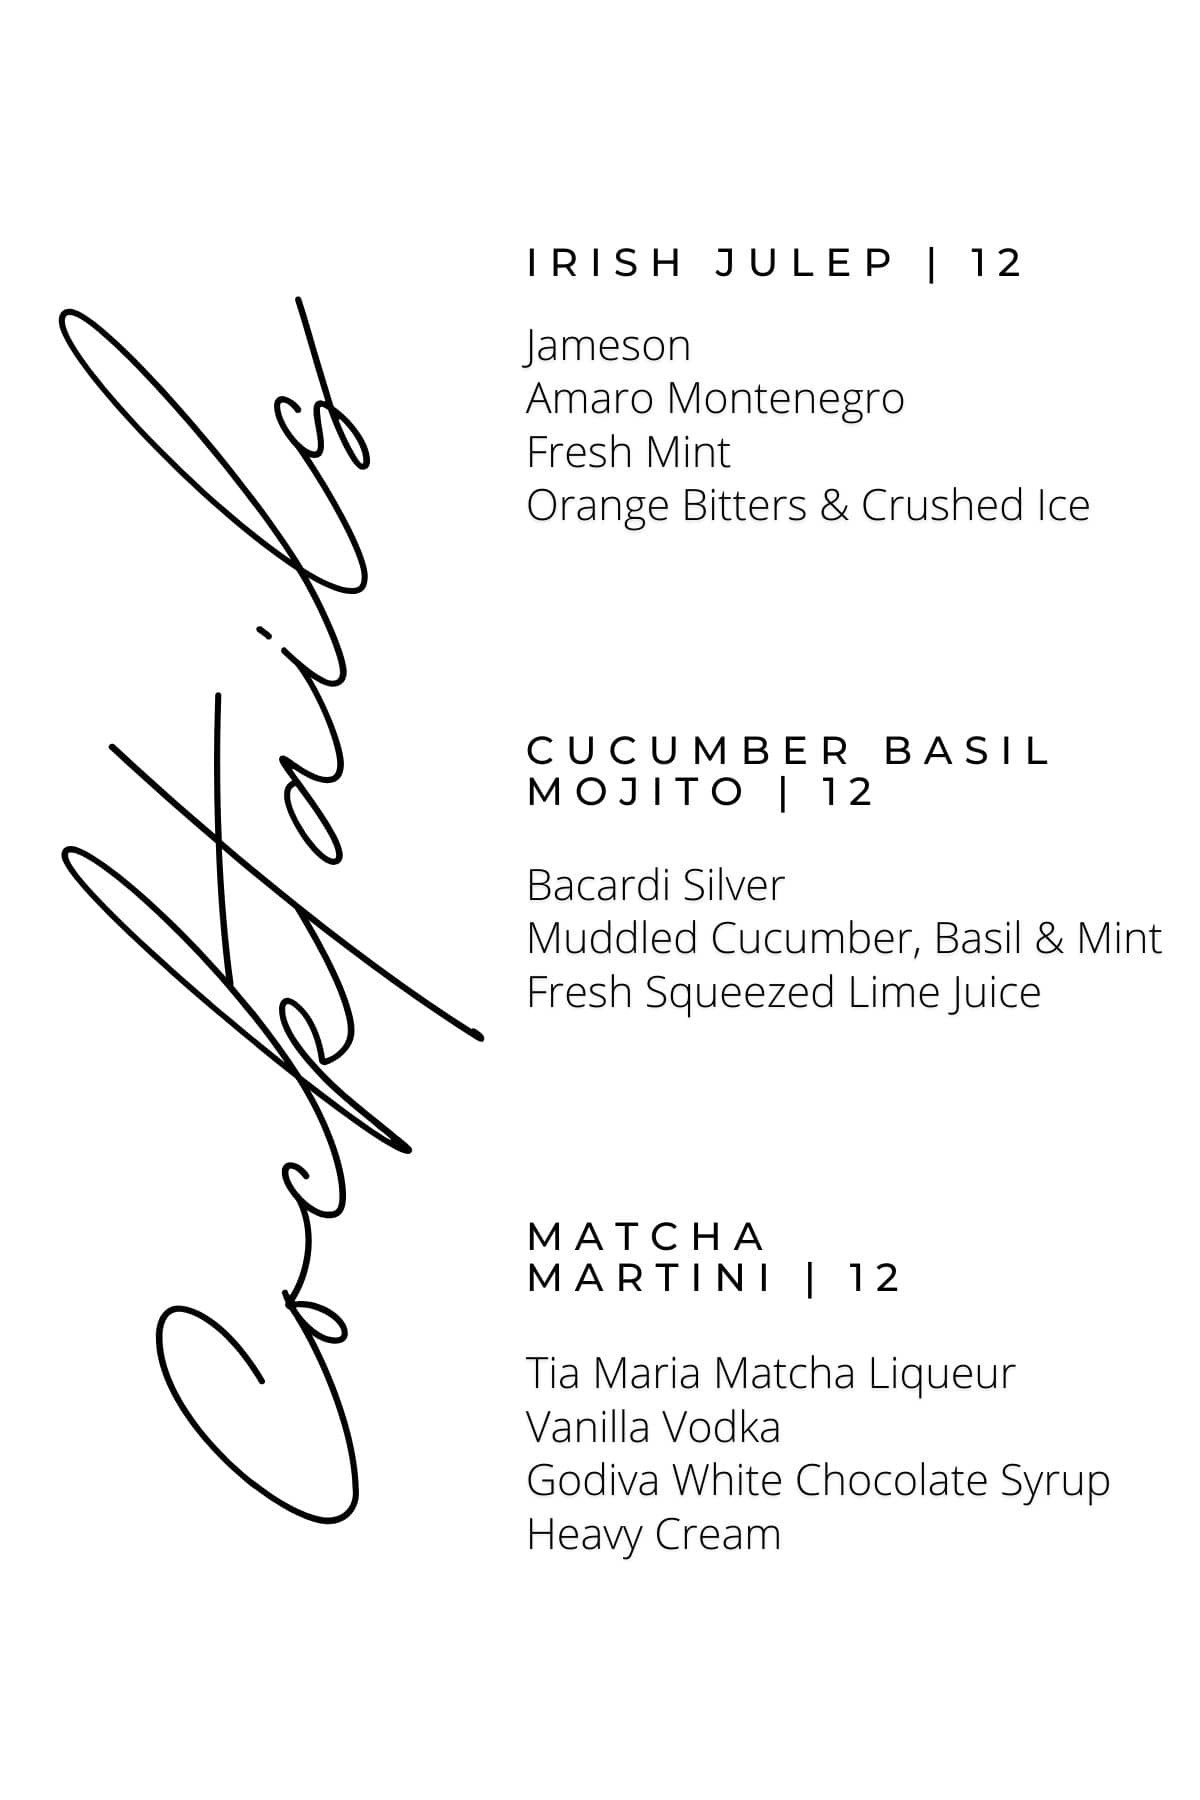 Cocktails
IRISH JULEP | 12
Jameson
Amaro Montenegro
Fresh Mint
Orange Bitters & Crushed Ice
CUCUMBER BASIL
MOJITO | 12
Bacardi Silver
Muddled Cucumber, Basil & Mint
Fresh Squeezed Lime Juice
MATCHA
MARTINI | 12
Tia Maria Matcha Liqueur
Vanilla Vodka
Godiva White Chocolate Syrup
Heavy Cream